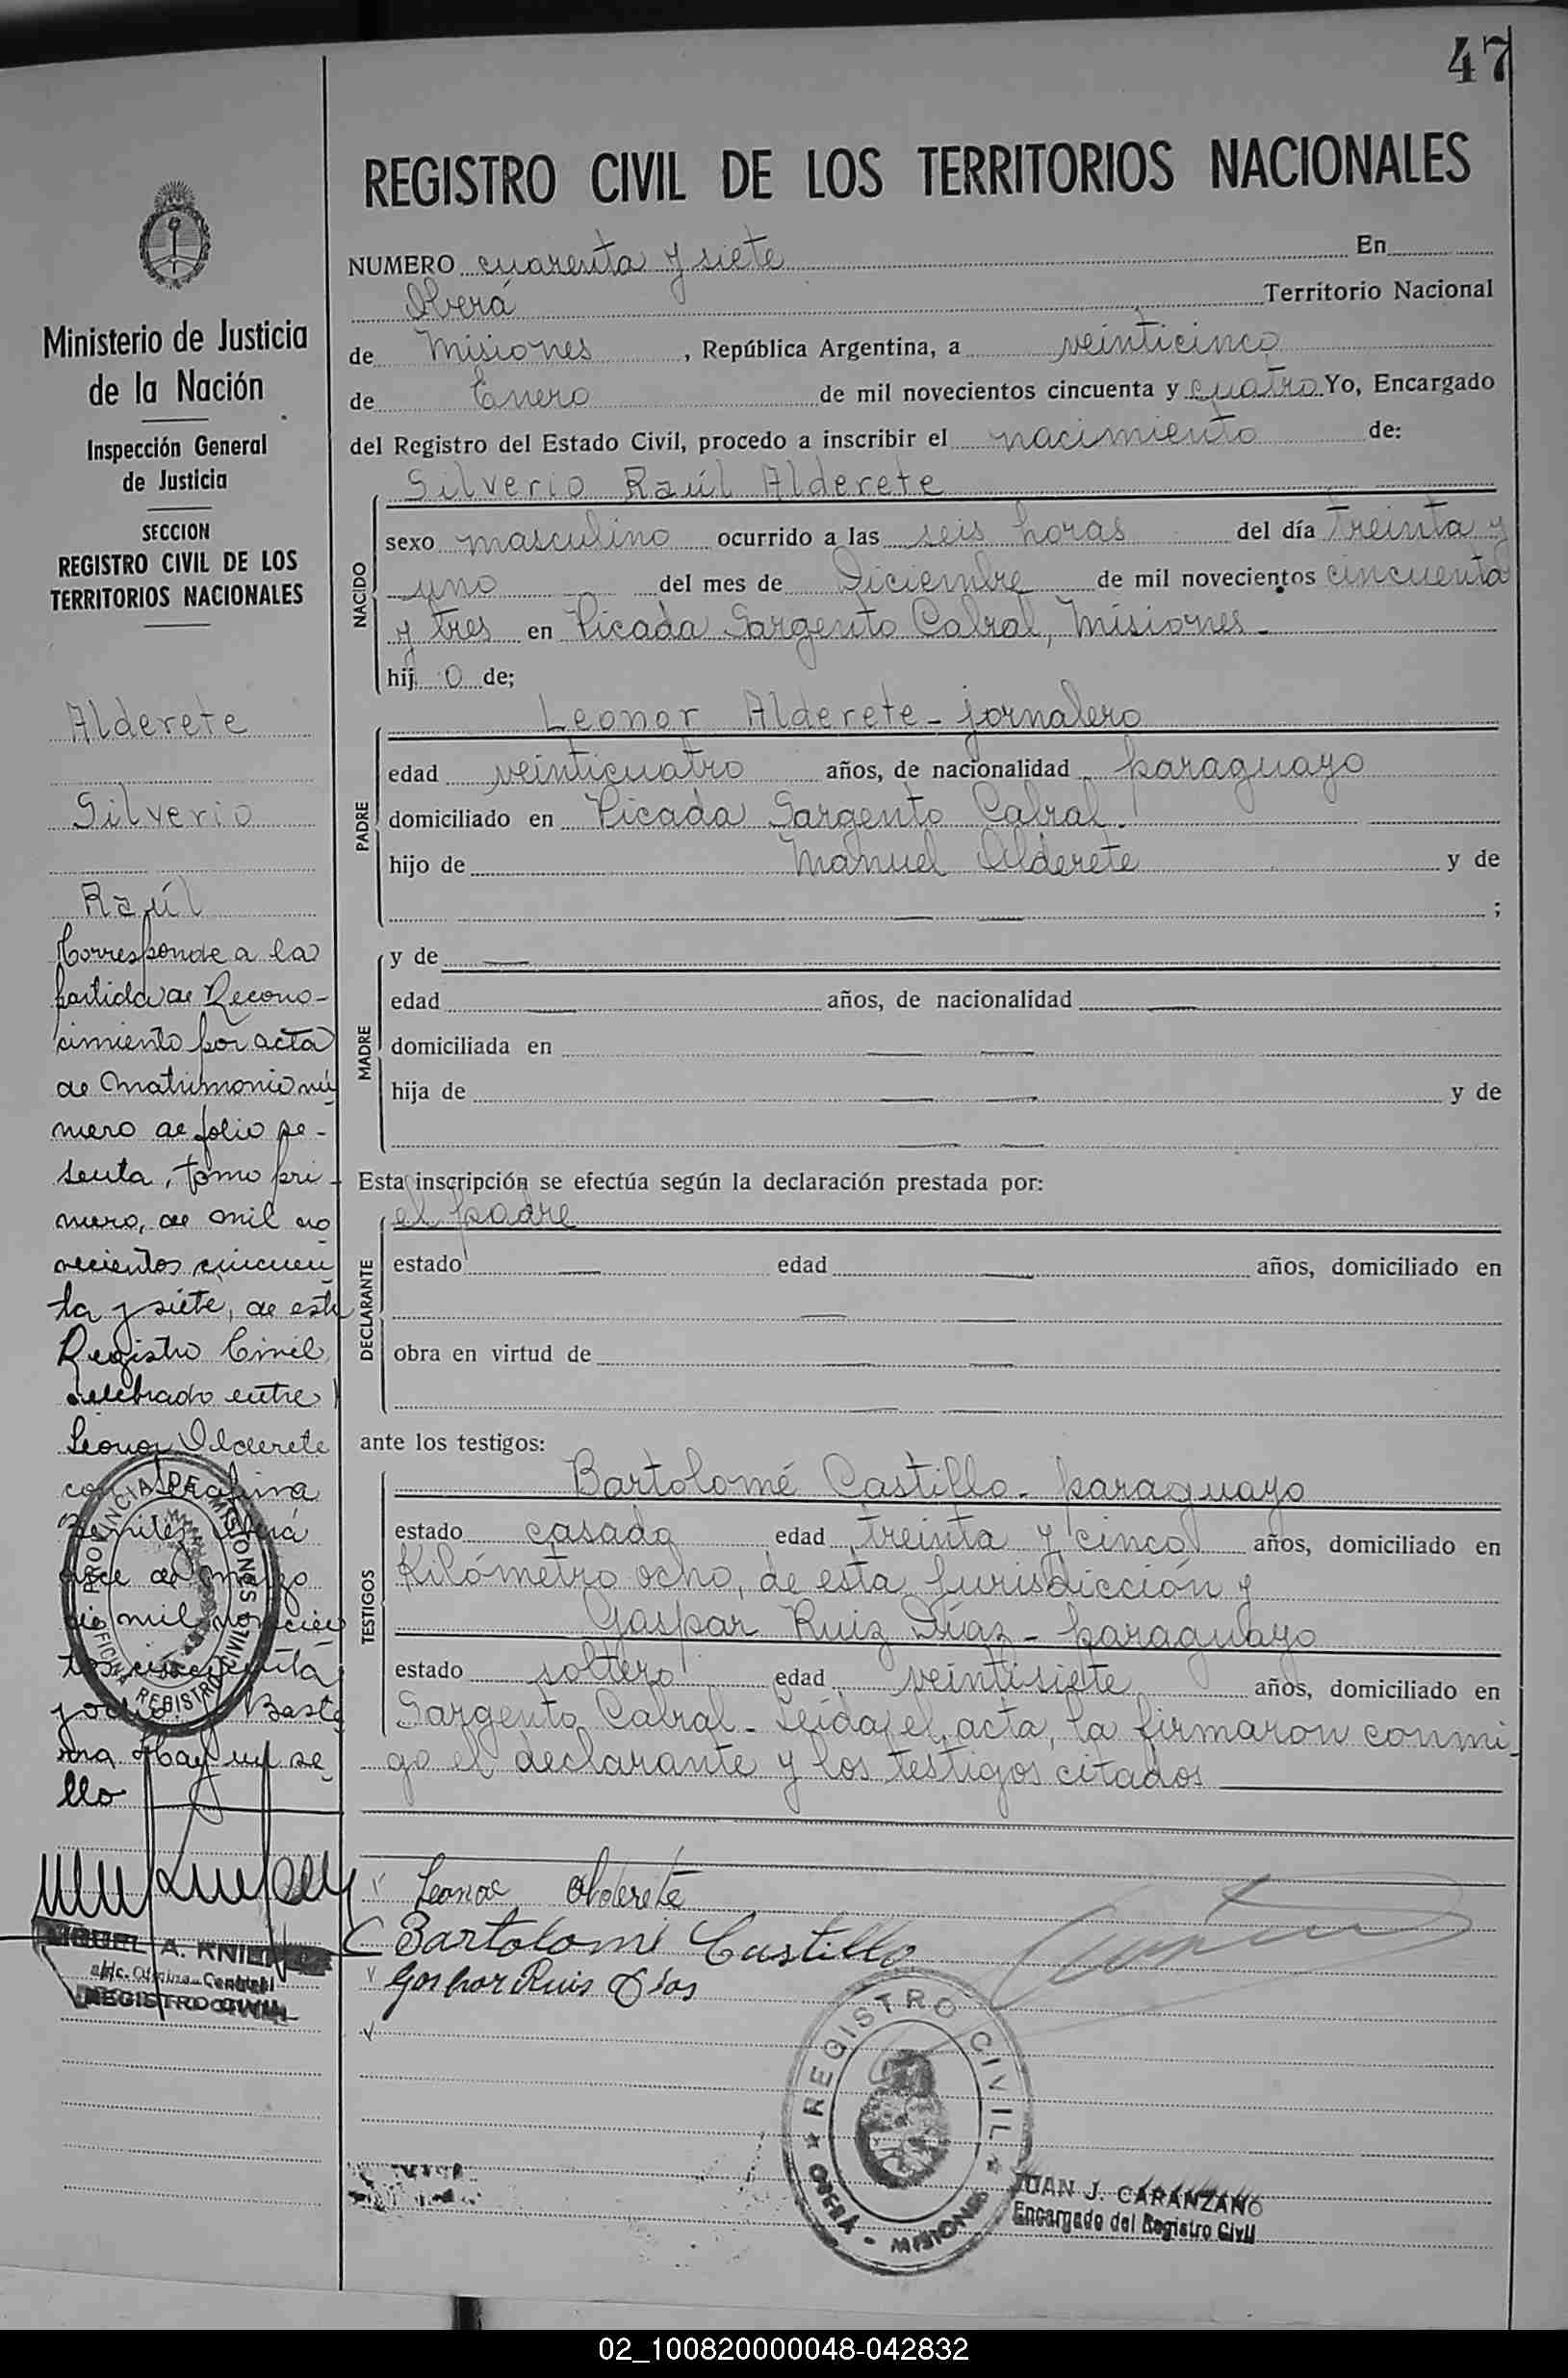 47
REGISTRO CIVIL DE LOS TERRITORIOS NACIONALES
NUMERO cuarenta y siete En
Oberá Territorio Nacional
de Misiones, República Argentina, a veinticinco
de Enero de mil novecientos cincuenta y cuatro Yo, Encargado
del Registro del Estado Civil, procedo a inscribir el nacimiento de:
Silverio Raúl Alderete
NACIDO
sexo masculino ocurrido a las seis horas del día treinta y
uno del mes de Diciembre de mil novecientos cincuenta
y tres en Picada Sargento Cabral, Misiones.
hij o de;
Leonor Alderete - jornalero
PADRE
edad veinticuatro años, de nacionalidad paraguayo
domiciliado en Picada Sargento Cabral.
hijo de Manuel Alderete y de
;
MADRE
y de
edad años, de nacionalidad
domiciliada en
hija de y de
Esta inscripción se efectúa según la declaración prestada por:
el padre
DECLARANTE
estado edad años, domiciliado en
obra en virtud de
ante los testigos:
Bartolomé Castillo - paraguayo
TESTIGOS
estado casado edad treinta y cinco años, domiciliado en
Kilómetro ocho, de esta jurisdicción y
Gaspar Ruiz Díaz - paraguayo
estado soltero edad veintisiete años, domiciliado en
Sargento Cabral - Leída el acta, la firmaron conmi-
go el declarante y los testigos citados
Leonor Alderete
Bartolomé Castillo
Gaspar Ruis Dias
REGISTRO CIVIL
OBERÁ - MISIONES
JUAN J. CARANZANO
Encargado del Registro Civil
Ministerio de Justicia
de la Nación
Inspección General
de Justicia
SECCION
REGISTRO CIVIL DE LOS
TERRITORIOS NACIONALES
Alderete
Silverio
Raúl
Corresponde a la
partida de Recono-
cimiento por acta
de Matrimonio nú
mero de folio se-
senta, tomo pri-
mero, de mil no
vecientos cincuen
ta y siete, de este
Registro Civil
celebrado entre
Leonor Alderete
con
Oberá
de marzo
de mil novecien
tos cincuenta
y ocho.
hay un se
llo
PROVINCIA DE MISIONES
OFICINA REGISTRO CIVIL
MIGUEL A.
a/c. Oficina Central
REGISTRO CIVIL
02_100820000048-042832